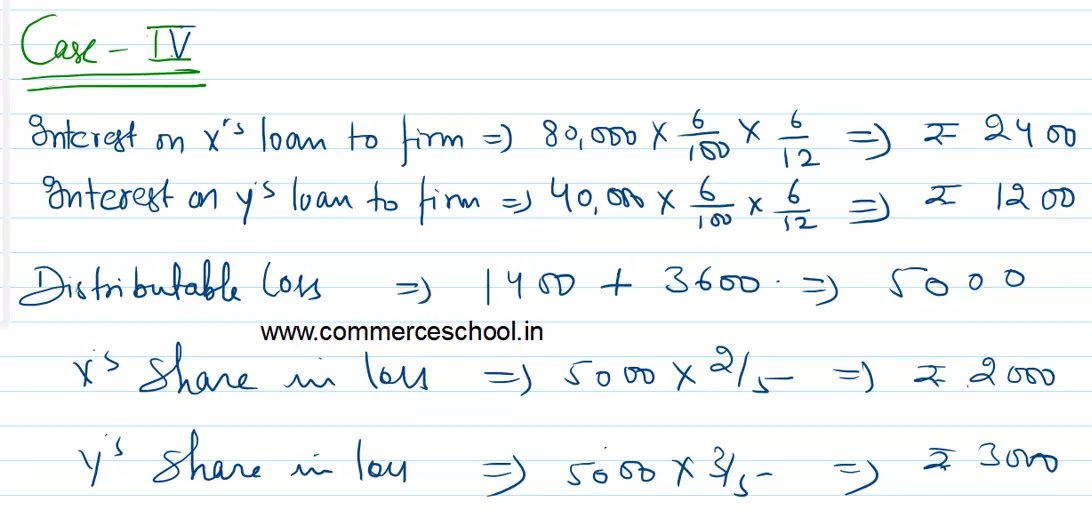 Case - IV
Interest on X's loan to firm => 80,000 × 6/100 × 6/12 => ₹ 2400
Interest on Y's loan to firm => 40,000 × 6/100 × 6/12 => ₹ 1200
Distributable Loss => 1400 + 3600 => 5000
www.commerceschool.in
X's Share in loss => 5000 × 2/5 => ₹ 2000
Y's Share in loss => 5000 × 3/5 => ₹ 3000